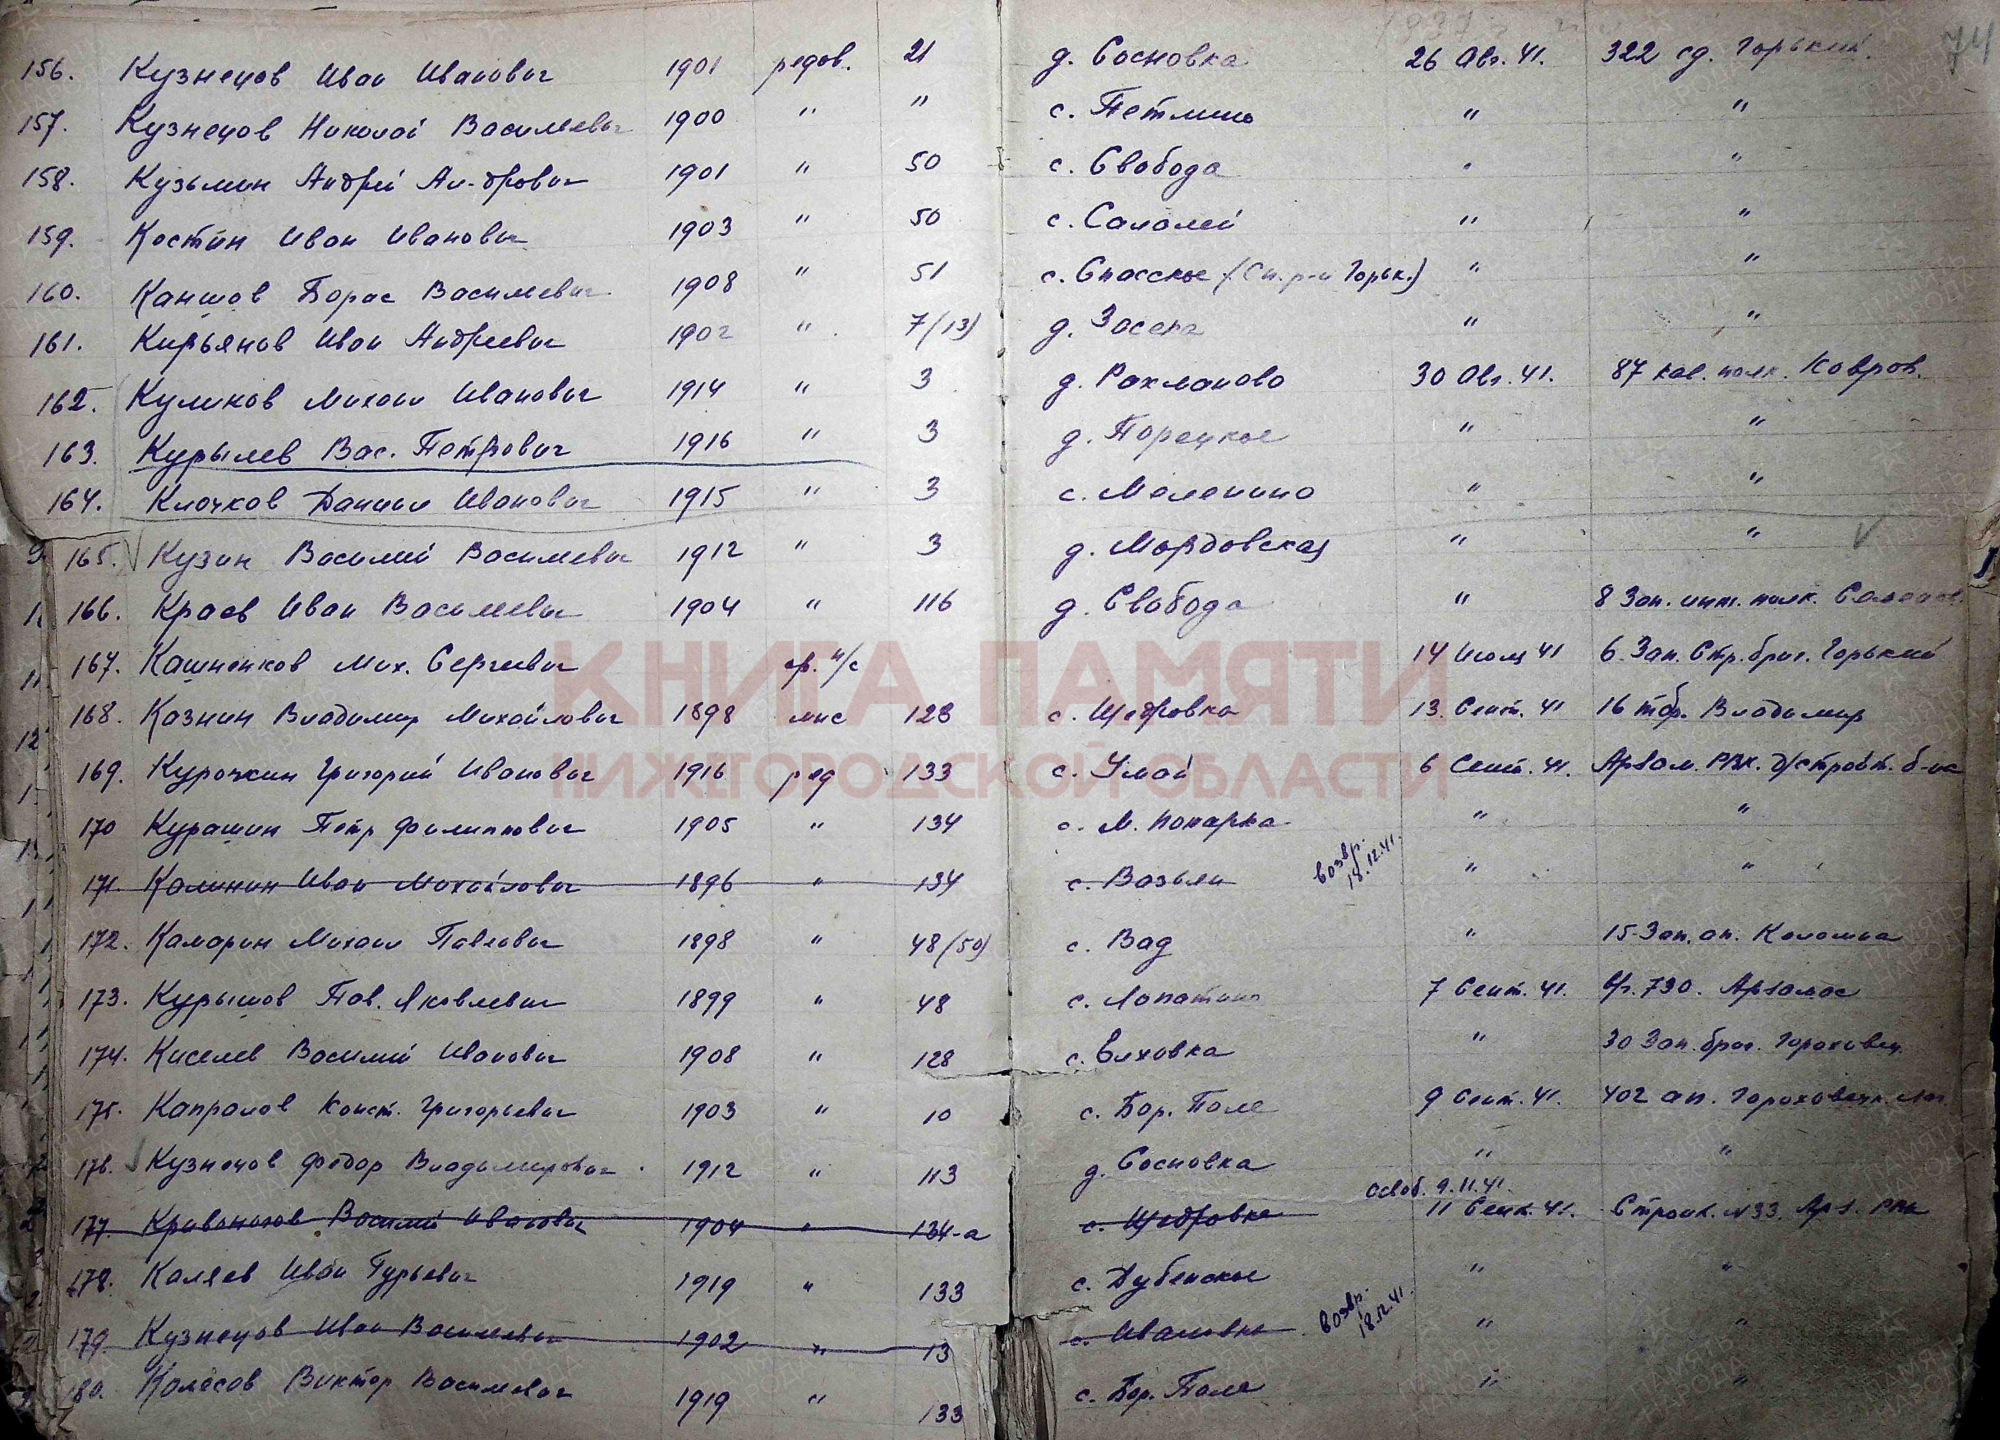 74
156. Кузнецов Иван Иванович 1901 рядов. 21 д. Сосновка 26 Авг. 41. 322 сд. Горький.
157. Кузнецов Николай Васильевич 1900 " " с. Петлино " "
158. Кузьмин Андрей Ан-дрович 1901 " 50 с. Свобода " "
159. Костин Иван Иванович 1903 " 50 с. Салалей " "
160. Каншов Борис Васильевич 1908 " 51 с. Спасское (Сп. р-н Горьк.) " "
161. Кирьянов Иван Андреевич 1902 " 7/13) д. " "
162. Куликов Михаил Иванович 1914 " 3 д. Рахманово 30 Авг. 41. 87 кав. полк. Ковров.
163. Курылев Вас. Петрович 1916 " 3 д. Порецкое " "
164. Клочков Даниил Иванович 1915 " 3 с. Меленино " "
165. Кузин Василий Васильевич 1912 " 3 д. Мордовская " "
166. Краев Иван Васильевич 1904 " 116 д. Свобода " 8 Зап. инж. полк.
167. Кашненков Мих. Сергеевич ср. н/с 14 Июля 41 6 Зап. Стр. бриг. Горький
168. Казнин Владимир Михайлович 1898 мнс 128 с. Щедровка 13 Сент. 41 16 тбр. Владимир
169. Курочкин Григорий Иванович 1916 ряд 133 с. Умай 6 Сент. 41. Арзам. РВК. д/стройт. б-на
170 Курашин Петр Филиппович 1905 " 134 с. М. Покарка " "
171. Калинин Иван Михайлович 1896 " 134 с. Вазьян возвр. 18.12.41. " "
172. Камарин Михаил Павлович 1898 " 48/50) с. Вад " 15 Зап. ап. Коломна
173. Курышов Пав. Яковлевич 1899 " 48 с. Лопатино 7 Сент. 41. 730. Арзамас
174. Киселев Василий Иванович 1908 " 128 с. Елховка " 30 Зап. бриг. Гороховец
175. Капралов Конст. Григорьевич 1903 " 10 с. Бор. Поле 9 Сент. 41. 402 ап. Гороховецк. лаг.
176. Кузнецов Федор Владимирович 1912 " 113 д. Сосновка " "
освоб. 9.11.41.
177. Кривоногов Василий Иванович 1904 " 134-а с. Щедровка 11 Сент. 41. Строит. №33. Арз. РВК
178. Каляев Иван Гурьевич 1919 " 133 с. Дубенское " "
179. Кузнецов Иван Васильевич 1902 " 13 с. Ивановка возвр. 18.12.41. " "
180. Колесов Виктор Васильевич 1919 " 133 с. Бор. Поле " "
КНИГА ПАМЯТИ
НИЖЕГОРОДСКОЙ ОБЛАСТИ